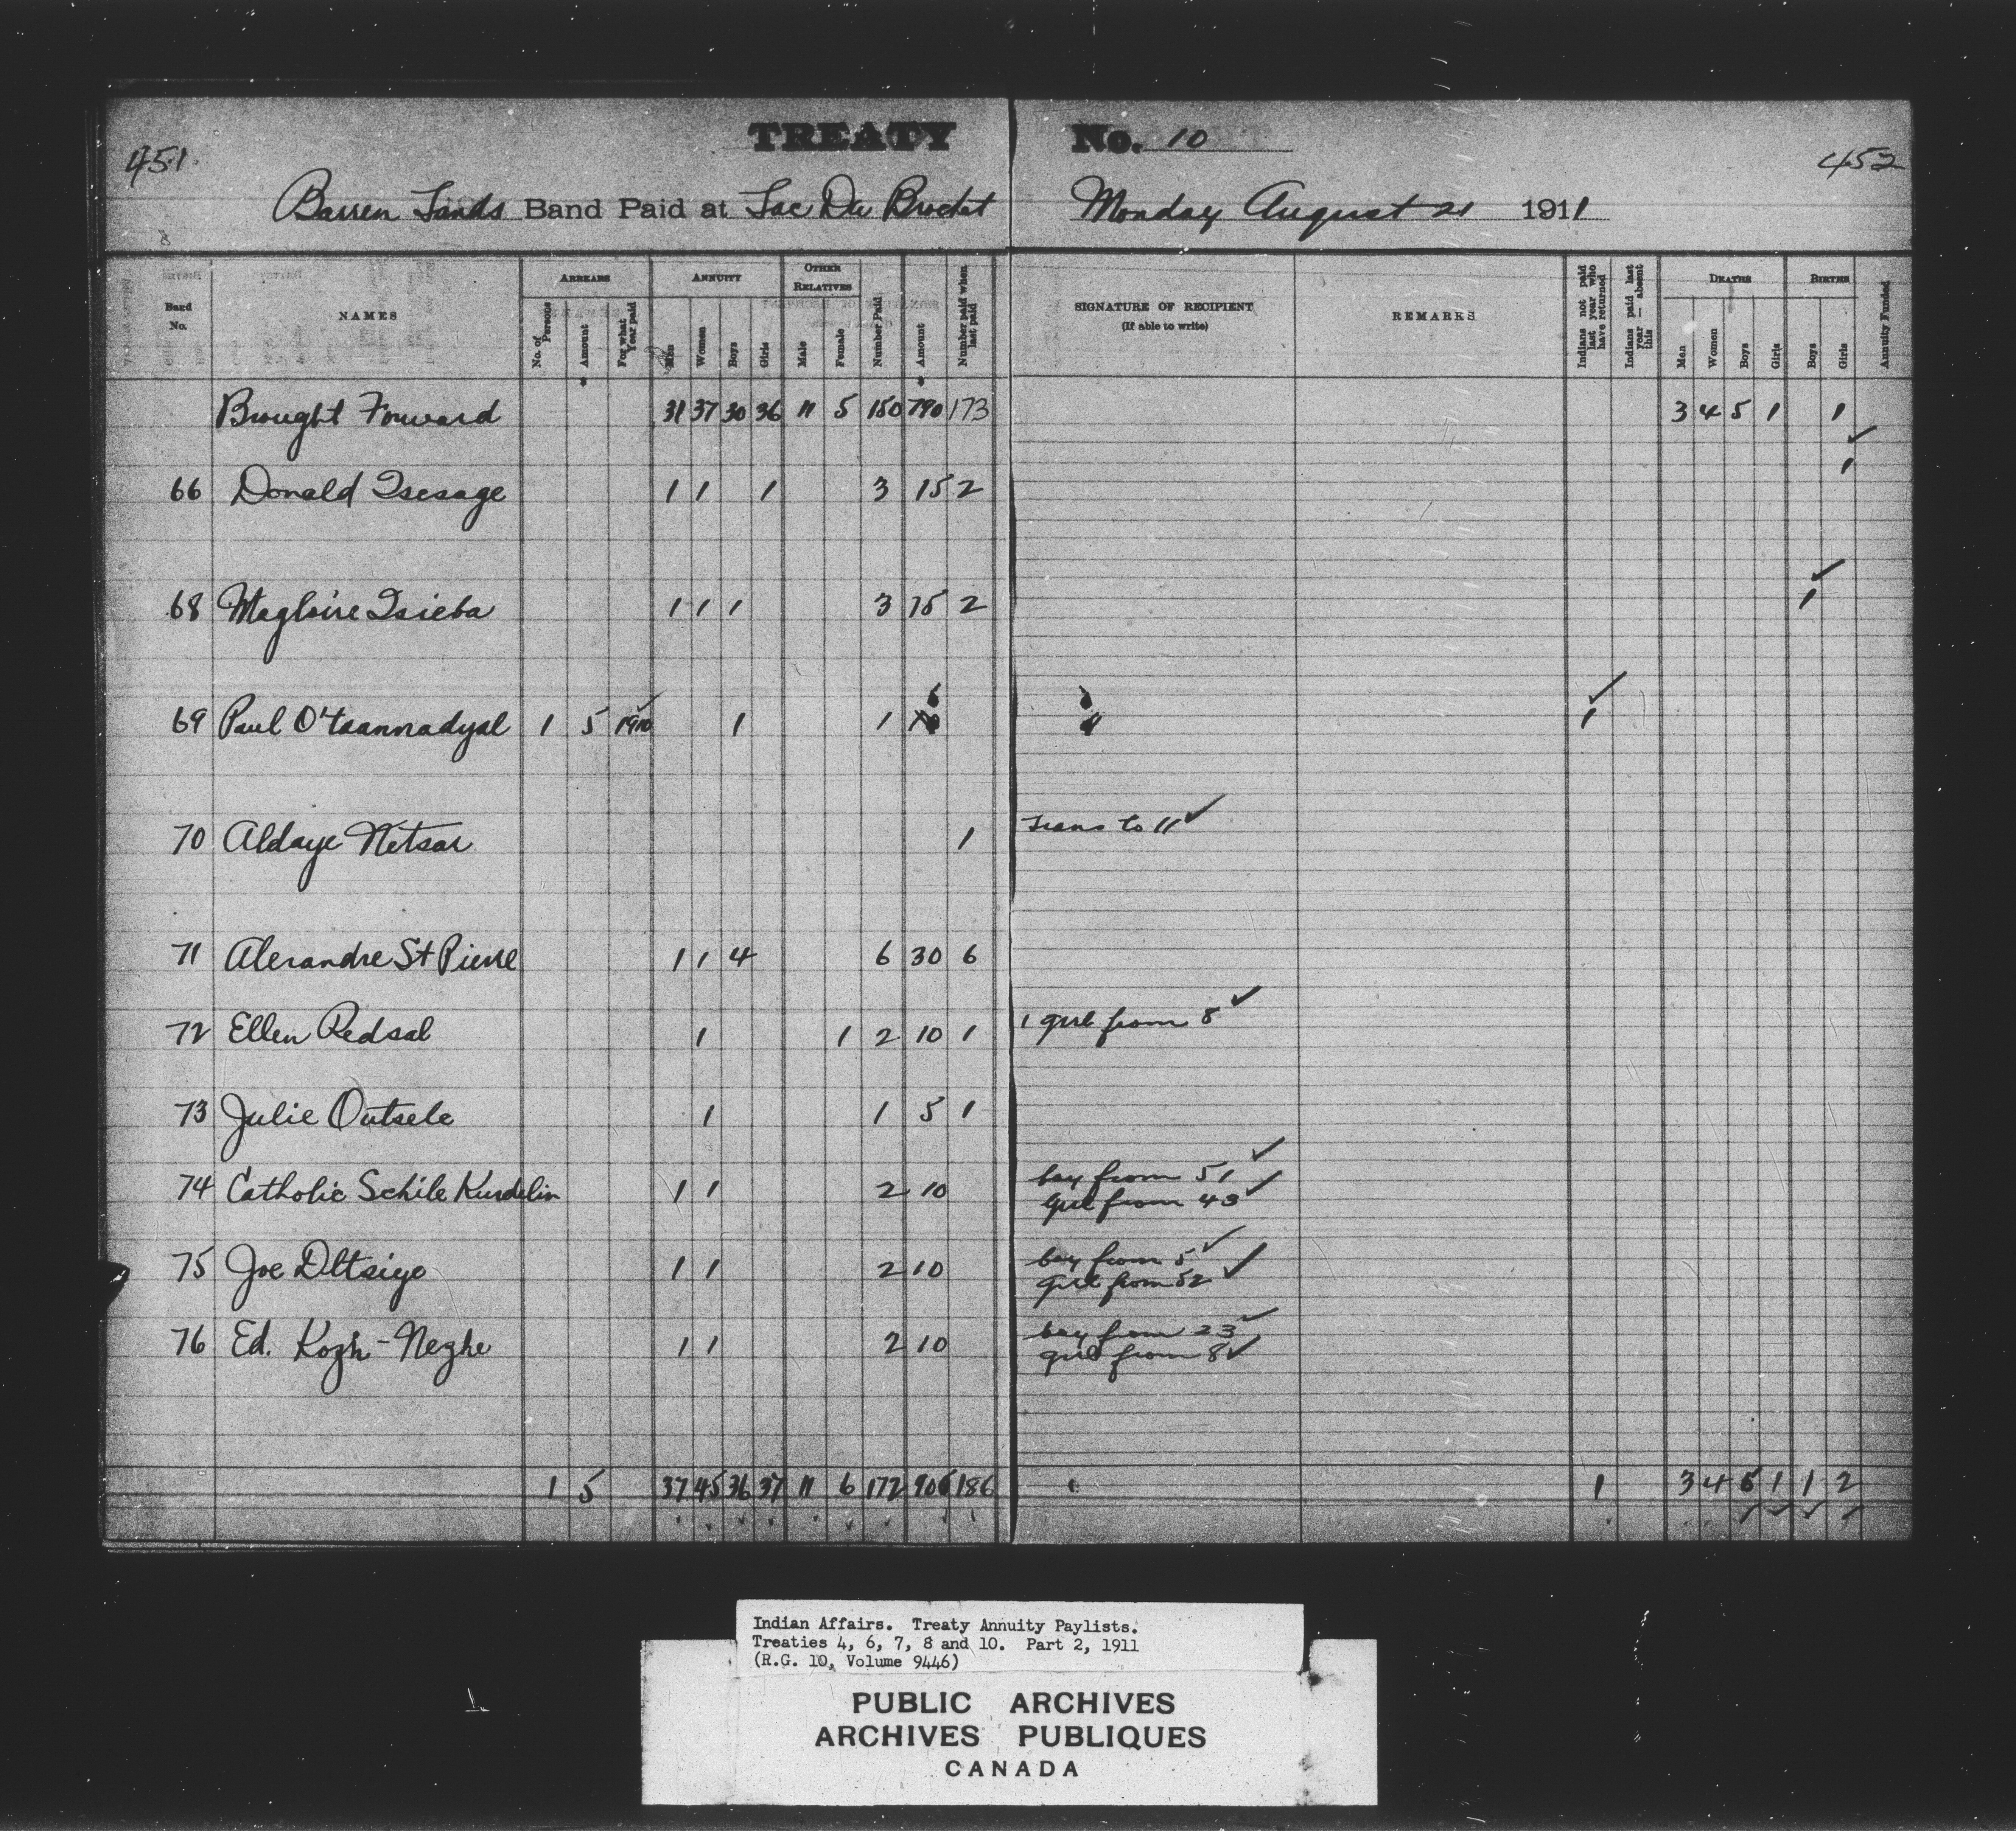 451
TREATY No. 10
452
Barren Lands Band Paid at Lac Du Brochet Monday August 21 1911
Band No. NAMES ARREARS No. of Persons Amount For what Year paid ANNUITY Men Women Boys Girls OTHER RELATIVES Male Female Number Paid Amount Number paid when last paid SIGNATURE OF RECIPIENT (If able to write) REMARKS Indians not paid last year who have returned Indians paid last year — absent this DEATHS Men Women Boys Girls BIRTHS Boys Girls Annuity Funded
Brought Forward 31 37 30 36 11 5 150 790 173 3 4 5 1 1
66 Donald Tsesage 1 1 1 3 15 2 ✓ 1
68 Magloire Tsieba 1 1 1 3 15 2 ✓ 1
69 Paul O'tsannadyal 1 5 1910 ✓ 1 1 ✓ 1
70 Aldaye Netsar 1 Trans to 11 ✓
71 Alexandre St Pierre 1 1 4 6 30 6
72 Ellen Redsal 1 1 2 10 1 1 girl from 8 ✓
73 Julie Outsele 1 1 5 1
74 Catholic Schile Kurdelin 1 1 2 10 boy from 51 ✓
girl from 43 ✓
75 Joe Dltsiye 1 1 2 10 boy from 5 ✓
girl from 52 ✓
76 Ed. Kozh-Neghe 1 1 2 10 boy from 23 ✓
girl from 8 ✓
1 5 37 45 36 37 11 6 172 905 186 1 3 4 5 1 1 2
Indian Affairs. Treaty Annuity Paylists.
Treaties 4, 6, 7, 8 and 10. Part 2, 1911
(R.G. 10, Volume 9446)
PUBLIC ARCHIVES
ARCHIVES PUBLIQUES
CANADA